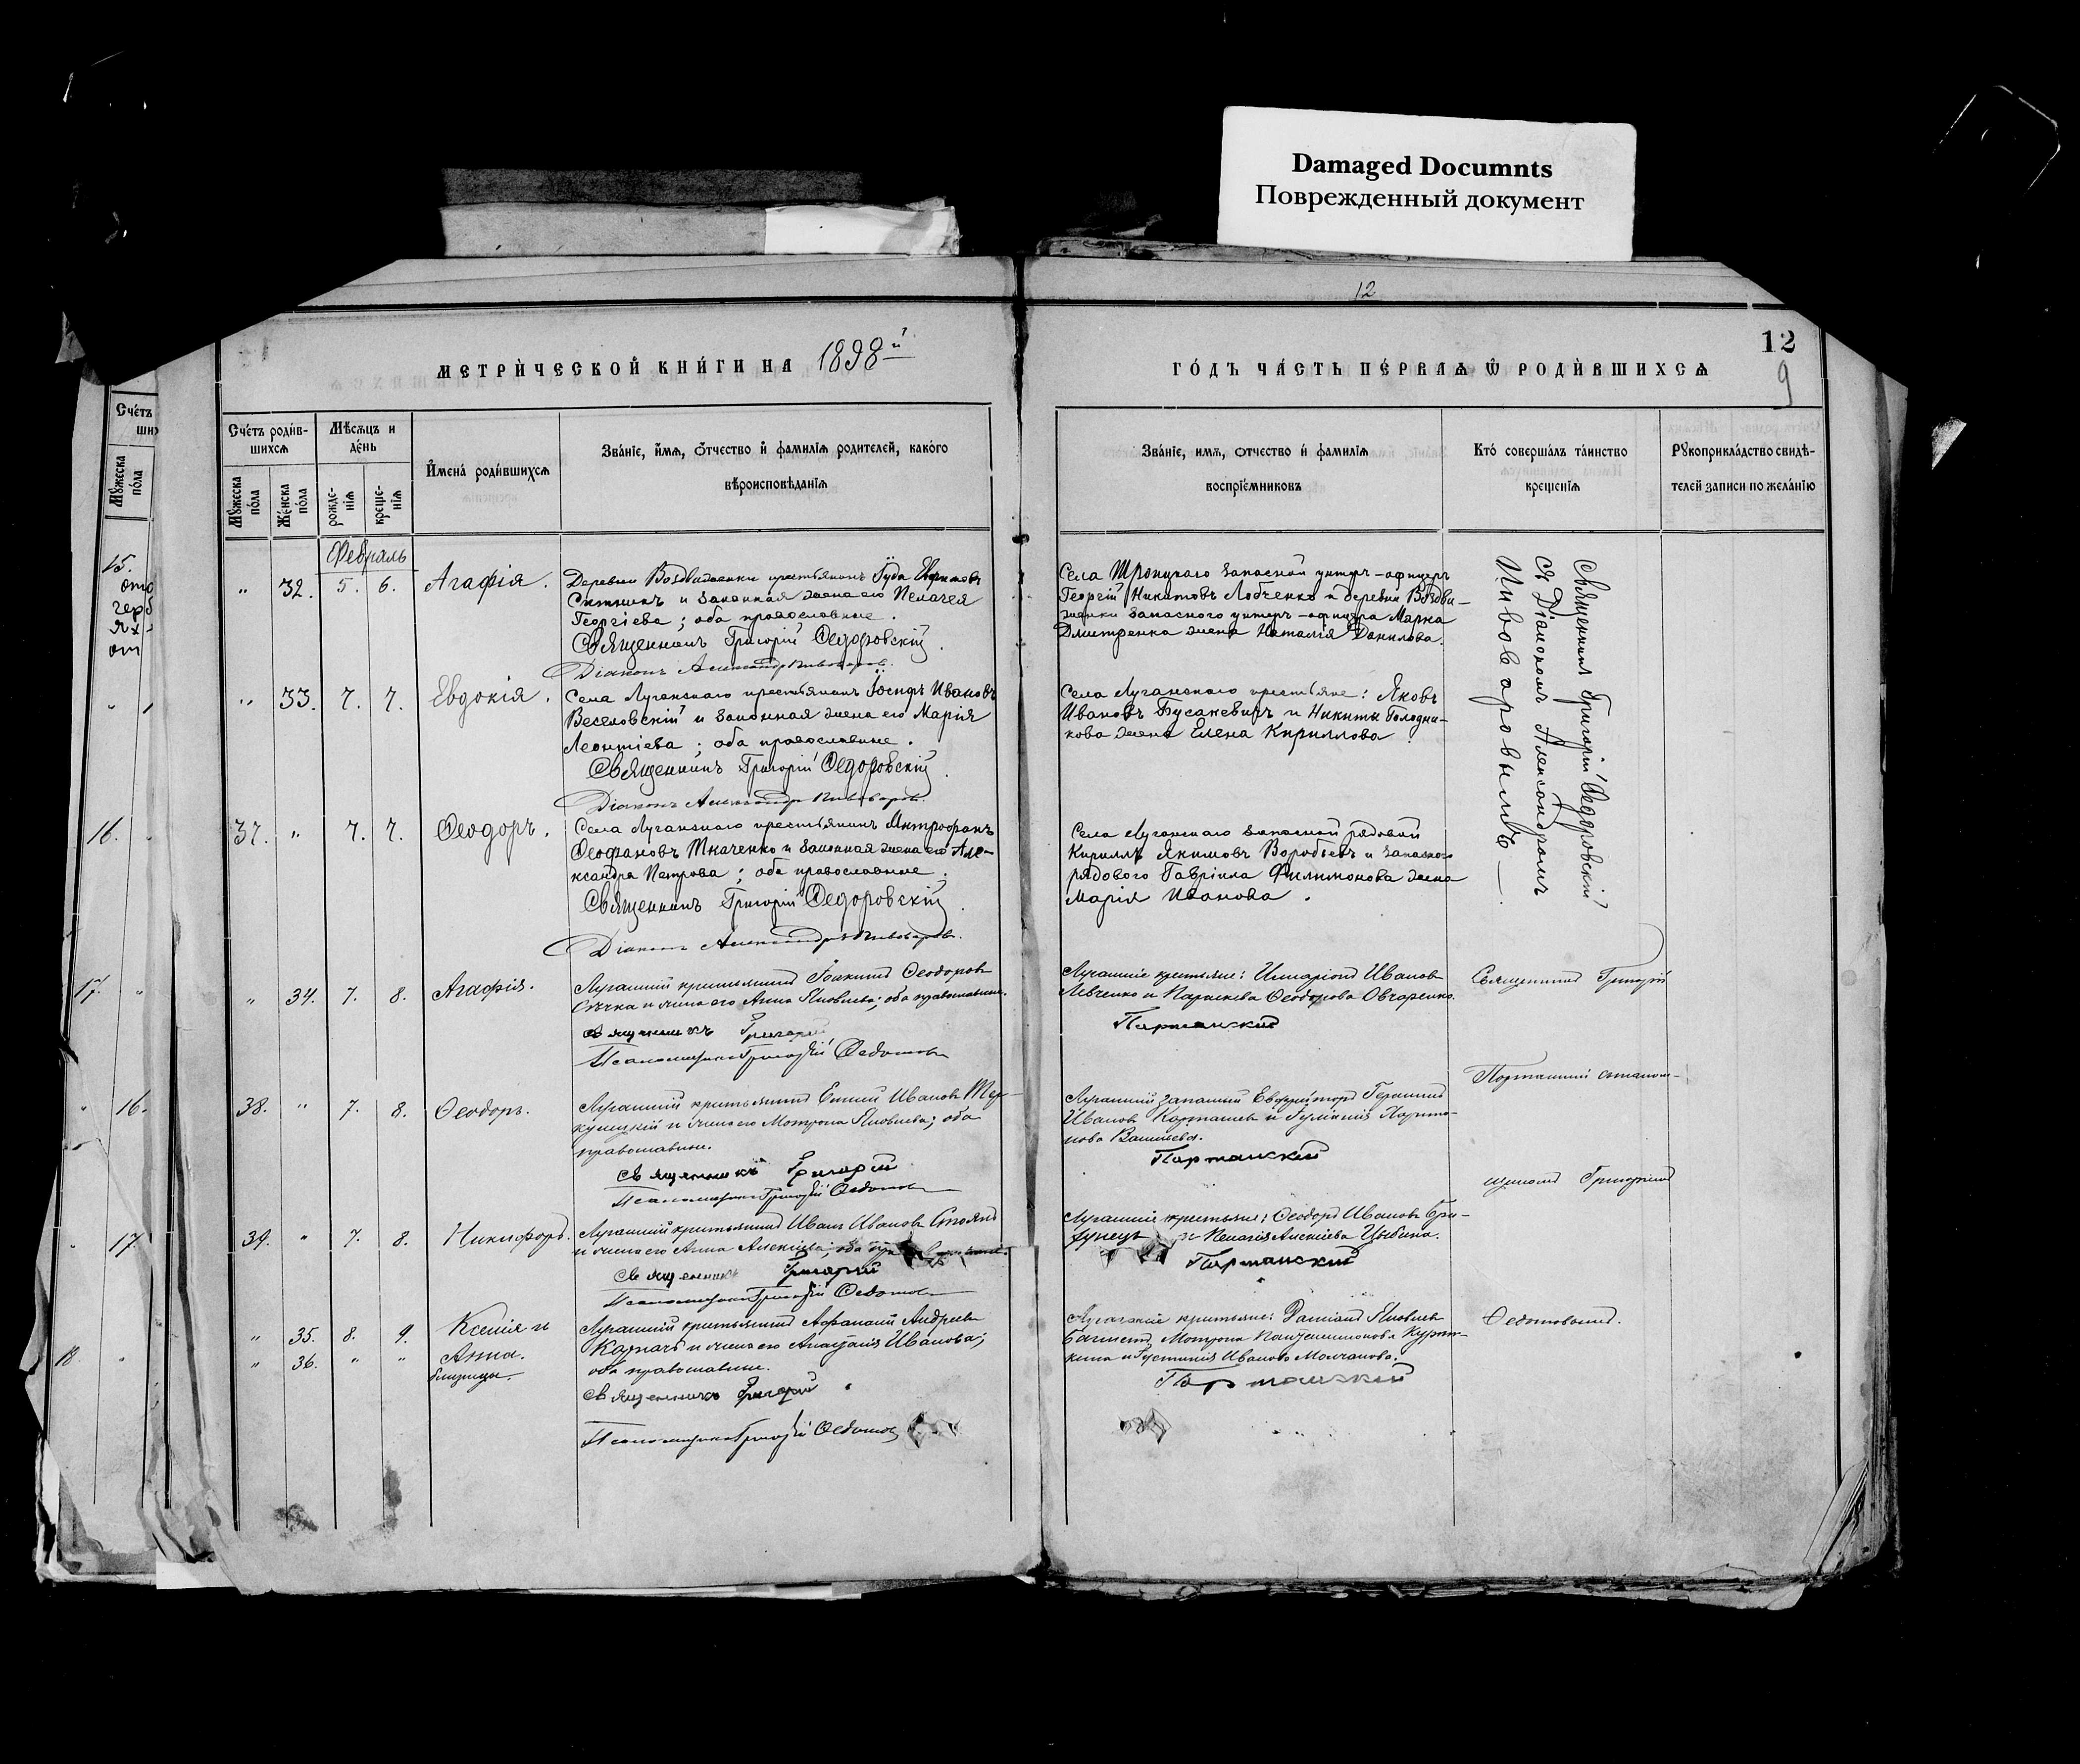 Damaged Documnts
Поврежденный документ
12
12
9
МЕТРИЧЕСКОЙ КНИГИ НА 1898й
ГОДЪ ЧАСТЬ ПЕРВАѦ Ѿ РОДИВШИХСѦ
Счетъ родив-
шихсѧ
Мѣсѧцъ и
день
Имена родившихсѧ
Званіе, имѧ, отчество и фамиліѧ родителей, какого
вѣроисповѣданіѧ
Мꙋжеска
пола
Женска
пола
рожде-
ніѧ
креще-
ніѧ
Званіе, имѧ, отчество и фамиліѧ
воспріемниковъ
Кто совершалъ таинство
крещеніѧ
Рꙋкоприкладство свидѣ-
телей записи по желанію
Счетъ
ших
Мꙋжеска
пола
Февраль
" 32. 5. 6. Агафія.
Деревни Воздвиженки крестьянинъ Іуда
и законная жена его Пелагея
Георгіева; оба православные.
Священникъ Григорій Ѳедоровскій.
Діаконъ Александръ Пивоваровъ.
Села Троицкаго запасной унтеръ-офицеръ
Георгій Никитовъ Лобченко и деревни Воздви-
женки запасного унтеръ-офицера Марка
Дмитренка жена Наталія Данилова.
Священникъ Григорій Ѳедоровскій
съ Діакономъ Александромъ
Пивоваровымъ —
" 33. 7. 7. Евдокія.
Села Луганскаго крестьянинъ Іосифъ Ивановъ
Веселовскій и законная жена его Марія
Леонтіева; оба православные.
Священникъ Григорій Ѳедоровскій.
Діаконъ Александръ Пивоваровъ.
Села Луганскаго крестьяне: Яковъ
Ивановъ Бусакевичъ и Никиты Голодни-
кова жена Елена Кириллова.
37. " 7. 7. Ѳеодоръ.
Села Луганскаго крестьянинъ Митрофанъ
Ѳеофановъ Ткаченко и законная жена его Але-
ксандра Петрова; оба православные.
Священникъ Григорій Ѳедоровскій.
Діаконъ Александръ Пивоваровъ.
Села Луганскаго запасной рядовой
Кириллъ Якимовъ Воробьевъ и запасного
рядового Гавріила Филимонова жена
Марія Иванова.
" 34. 7. 8. Агафія.
Луганскій крестьянинъ Іоакимъ Ѳеодоровъ
Сѣчка и жена его Анна Яковлева; оба православные.
Священникъ Григорій
Псаломщикъ Григорій Ѳедотовъ
Луганскіе крестьяне: Иларіонъ Ивановъ
Левченко и Параскева Ѳеодорова Овчаренко.
Портанскій
Священникъ Григорій
38. " 7. 8. Ѳеодоръ.
Луганскій крестьянинъ Ивановъ Тер-
и жена его Матрона Яковлева; оба
православные.
Священникъ Григорій
Псаломщикъ Григорій Ѳедотовъ
Луганскій запасный Ефрейторъ Герасимъ
Ивановъ Карташевъ и Харито-
нова Васильева.
Портанскій
Портанскій съ псалом-
щикомъ Григоріемъ
39. " 7. 8. Никифоръ.
Луганскій крестьянинъ Иванъ Ивановъ Стоянъ
и жена его Анна Алексіева; оба
Священникъ Григорій
Псаломщикъ Григорій Ѳедотовъ
Луганскіе крестьяне: Ѳеодоръ Ивановъ
и Пелагія Алексіева Цыбина.
Портанскій
" 35. 8. 9. Ксенія и
" 36. " " Анна.
близнецы.
Луганскій крестьянинъ Афанасій Андреевъ
Карпачъ и жена его Анастасія Иванова;
оба православные.
Священникъ Григорій
Псаломщикъ Григорій Ѳедотовъ
Луганскіе крестьяне: Даміанъ Яковлевъ
Матрона Пантелеимонова
и Іустинія Иванова Молчанова.
Портанскій
Ѳедотовымъ.
15.
16.
17.
16.
17.
18